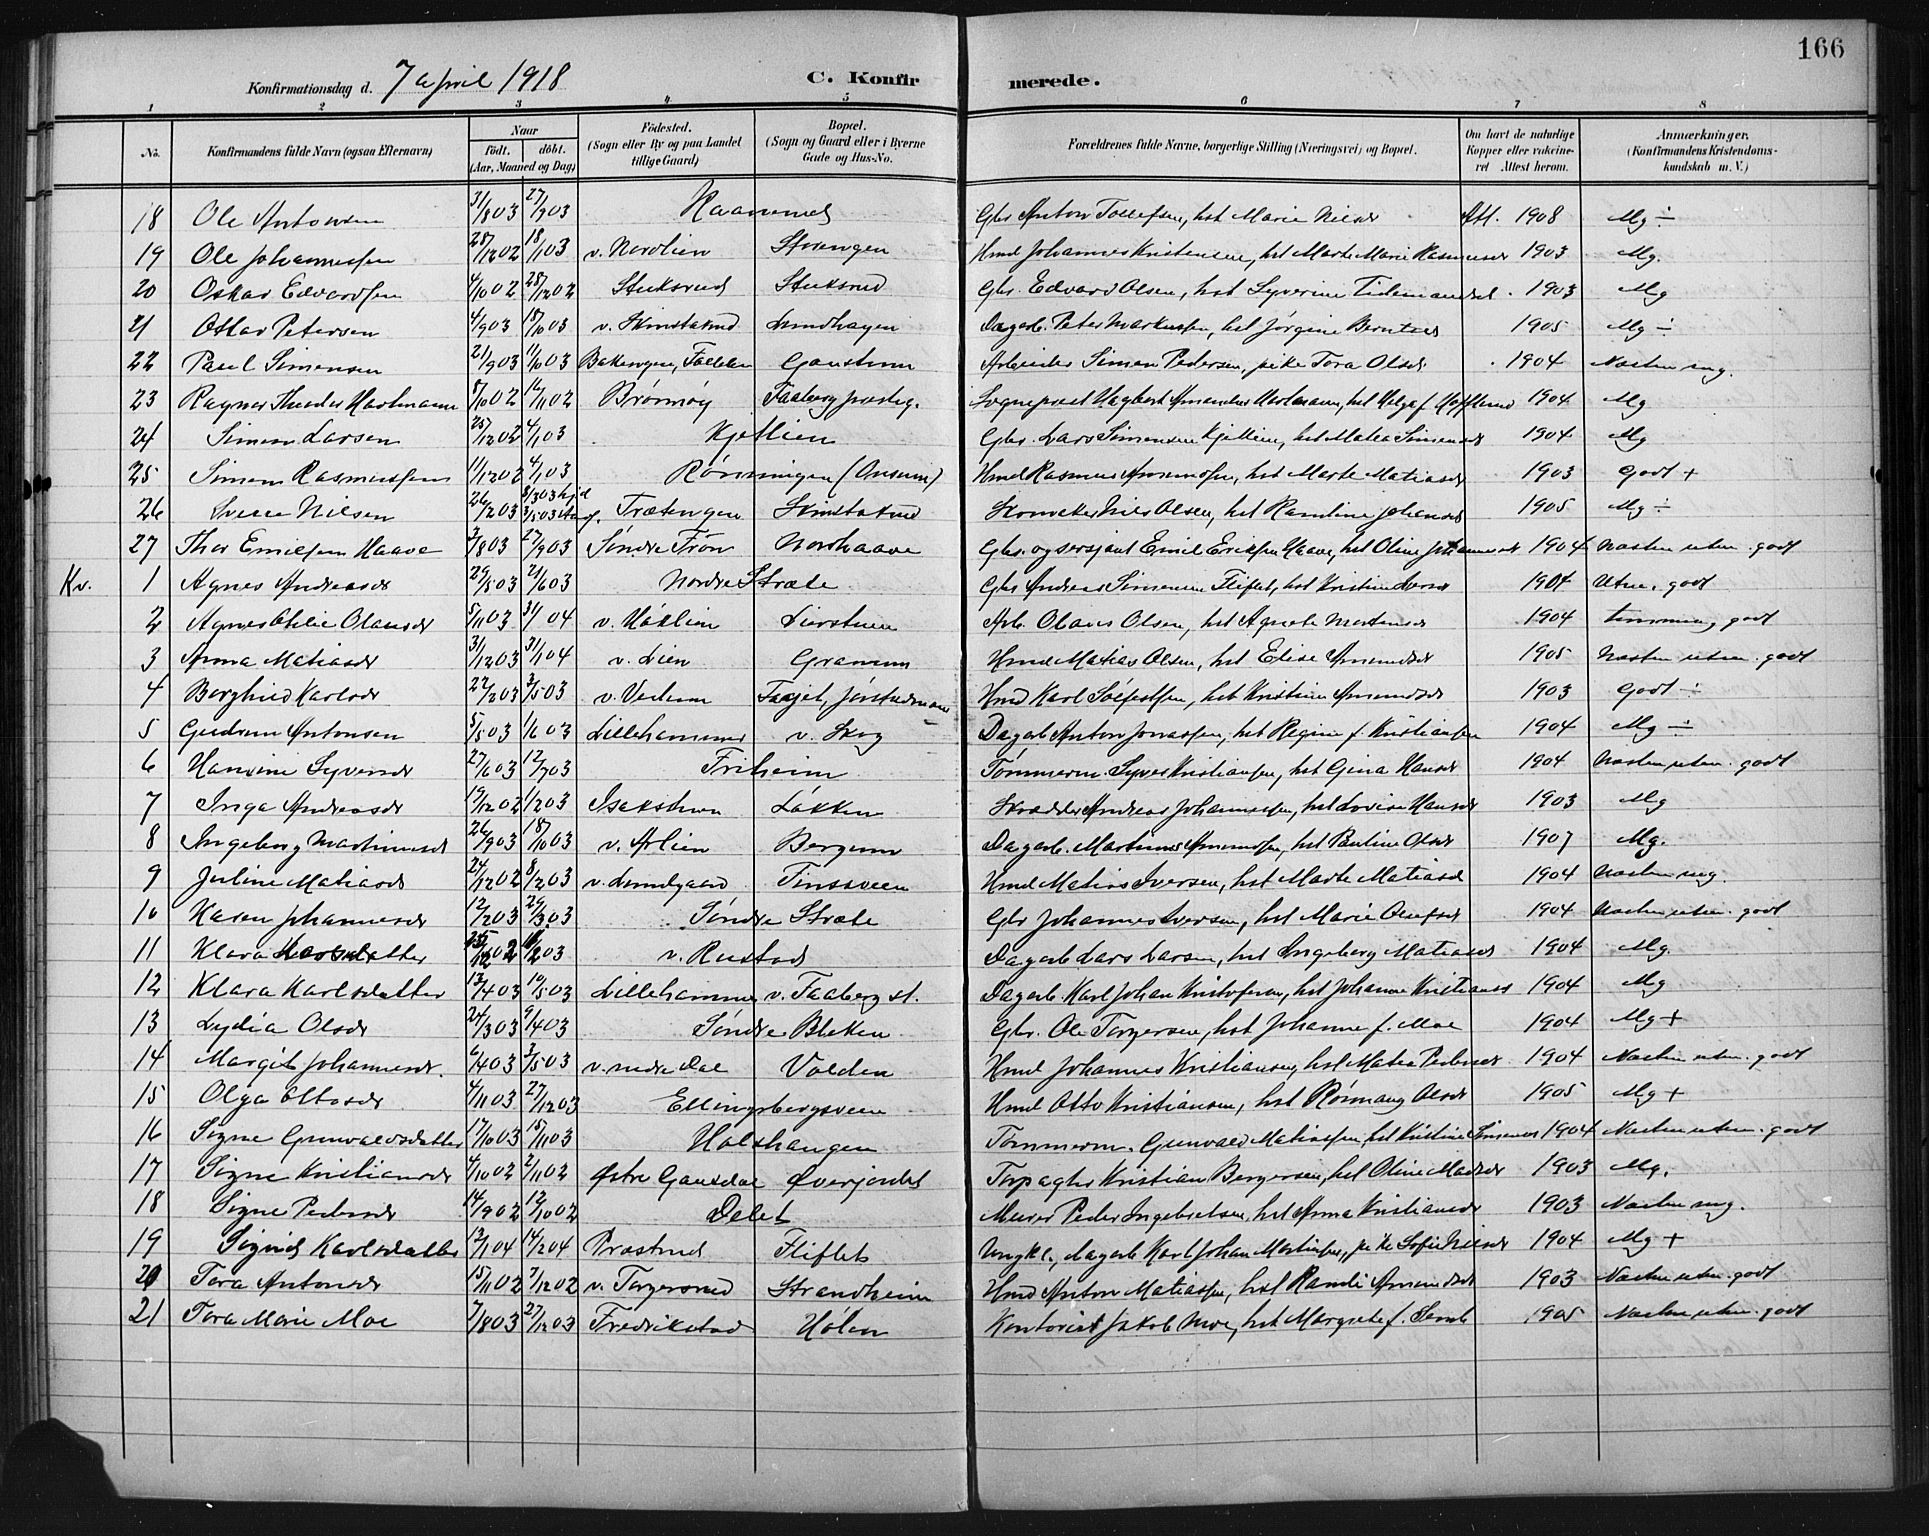 166
Konfirmationsdag d. 7 april 1918 C. Konfirmerede.
1 2 3 4 5 6 7 8
No. Konfirmandens fulde Navn (ogsaa Efternavn) Naar født. døbt. (Aar, Maaned og Dag) Fødested. (Sogn eller By og paa Landet tillige Gaard) Bopæl. (Sogn og Gaard eller i Byerne Gade og Hus-No. Forældrenes fulde Navne, borgerlige Stilling (Næringsvei) og Bopæl. Om havt de naturlige Kopper eller vakcineret Attest herom. Anmærkninger. (Konfirmandens Kristendomskundskab m. V.)
18 Ole Antonsen 31/8 03 27/9 03 Gbr Anton Tollefsen, hst Marie Nilsdr Att. 1908 Mg ÷
19 Ole Johannessen 28/12 02 18/1 03 v. Nordlien Hmd Johannes Kristensen, hst Marte Marie Rasmusdr 1903 Mg.
20 Oskar Edvardsen 4/10 02 28/12 02 Stuksrud Stuksrud Gbr. Edvard Olsen, hst Syverine Tidemandsd. 1903 Mg
21 Ottar Petersen 4/9 03 18/10 03 v. Skinstakrud Lundhagen Dagarb. Peter Markussen, hst Jørgine Berntsdr 1905 Mg ÷
22 Paul Simensen 21/9 03 11/10 03 Gaustum Arbeider Simen Pedersen, pike Tora Olsdr 1904 Næsten mg.
23 Ragnar Theodor Hartmann 8/10 02 16/11 02 Brønnøy Faaberg prestg. Sogneprest Hagbart Amandus Hartmann, hst Helga f. 1904 Mg
24 Simen Larsen 25/12 02 4/1 03 Kjetlien Gbr. Lars Simensen Kjetlien, hst Matea Simensdr 1904 Mg
25 Simen Rasmussen 11/12 02 4/1 03 Rønningen (Onsum) Hmd Rasmus Amundsen, hst Marte Matiasdr 1903 Godt +
26 Nilsen 26/2 03 Trætengen Skinstakrud Skomaker Nils Olsen, hst Karoline Johansdr 1905 Mg ÷
27 Thor Emilsen Haave 3/8 03 27/9 03 Søndre Fron Nordhaave Gbr. og sersjant Emil Eriksen Haave, hst Oline Johannesdr 1904 Næsten utm. godt
Kv. 1 Agnes Andreasdr 29/5 03 21/6 03 Nordre Stræte Gbr Andreas Simensen Fliflet, hst Kristine 1904 Utm. godt
2 Agnes Otilie Olausdr 5/11 03 31/1 04 v. Høklien Lierstuen Arb. Olaus Olsen, hst Agnete Mortensdr 1904 temmelig godt
3 Anna Matiasdr 31/12 03 31/1 04 v. Lien Granum Hmd Matias Olsen, hst Elise Amundsdr 1905 Næsten utm. godt
4 Borghild Karlsdr 22/2 03 3/5 03 Hmd Karl hst Kristine Amundsdr 1903 Godt ÷
5 Gudrun Antonsen 5/5 03 1/6 03 Lillehammer v. Skog Dagarb Anton Jonassen, hst Regine f. Kristiansen 1904 Mg ÷
6 Hansine Syversdr 27/6 03 12/7 03 Friheim Tømmerm. Syver Kristiansen, hst Gina Hansdr 1904 Næsten utm. godt
7 Inga Andreasdr 19/12 02 1/2 03 Isakstuen Løkken Skrædder Andreas Johannessen, hst Lovise Hansdr 1903 Mg
8 Ingeborg Martinusdr 26/9 03 18/10 03 v. Ørlien Bergum Dagarb. Martinus Amundsen, hst Pauline Olsdr 1907 Mg.
9 Juline Matiasdr 24/12 02 8/2 03 v. Lundgaard Tinssveen Hmd Matias Iversen, hst Marte Matiasdr 1904 Næsten mg.
10 Karen Johannesdr 12/2 03 29/3 03 Søndre Stræte Gbr Johannes Iversen, hst Marie Olufsdr 1904 Næsten utm. godt
11 Klara Larsdatter v. Rustad Dagarb Lars Larsen, hst Ingeborg Matiasdr 1904 Mg.
12 Klara Karlsdatter 13/4 03 10/5 03 Lillehammer v. Faaberg st. Dagarb. Karl Johan Kristofersen, hst Johanne Kristiansdr 1904 Mg
13 Lydia Olsdr 24/3 03 9/4 03 Søndre Bleken Gbr. Ole Torgersen, hst Johanne f. Moe 1904 Mg +
14 Margit Johannesdr. 6/4 03 3/5 03 v. nedre Dal Volden Hmd Johannes Kristiansen, hst Matea Pedersdr 1904 Næsten utm. godt
15 Olga Ottosdr 4/11 03 27/12 03 Ellingsbergsveen Hmd Otto Kristiansen, hst Rønnaug Olsdr 1905 Mg +
16 Signe Gunvaldsdatter 17/10 03 15/11 03 Holshaugen Tømmerm. Gunvald Matiassen, hst Kristine Simensdr 1904 Næsten utm. godt
17 Signe Kristiansdr 4/10 02 2/11 02 Østre Gausdal Øverjordet Torpagter Kristian Bergersen, hst Oline Madsdr 1903 Mg.
18 Signe Pedersdr 14/9 02 12/10 02 Dalet Murer Peder Ingebretsen, hst Anna Kristiansdr 1903 Næsten mg.
19 Sigrid Karlsdatter 12/1 04 14/2 04 Præstrud Fliflet Ungk., dagarb Karl Johan Martinsen, pike Sofie Nilsdr 1904 Mg +
20 Tora Antonsdr 15/11 02 7/12 02 v. Torgersrud Strandheim Hmd Anton Matiassen, hst Randi Amundsdr 1903 Næsten utm. godt
21 Tora Marie Moe 7/8 03 27/12 03 Fredrikstad Hølen Kontorist Jakob Moe, hst Margrete f. Semb 1905 Næsten utm. godt